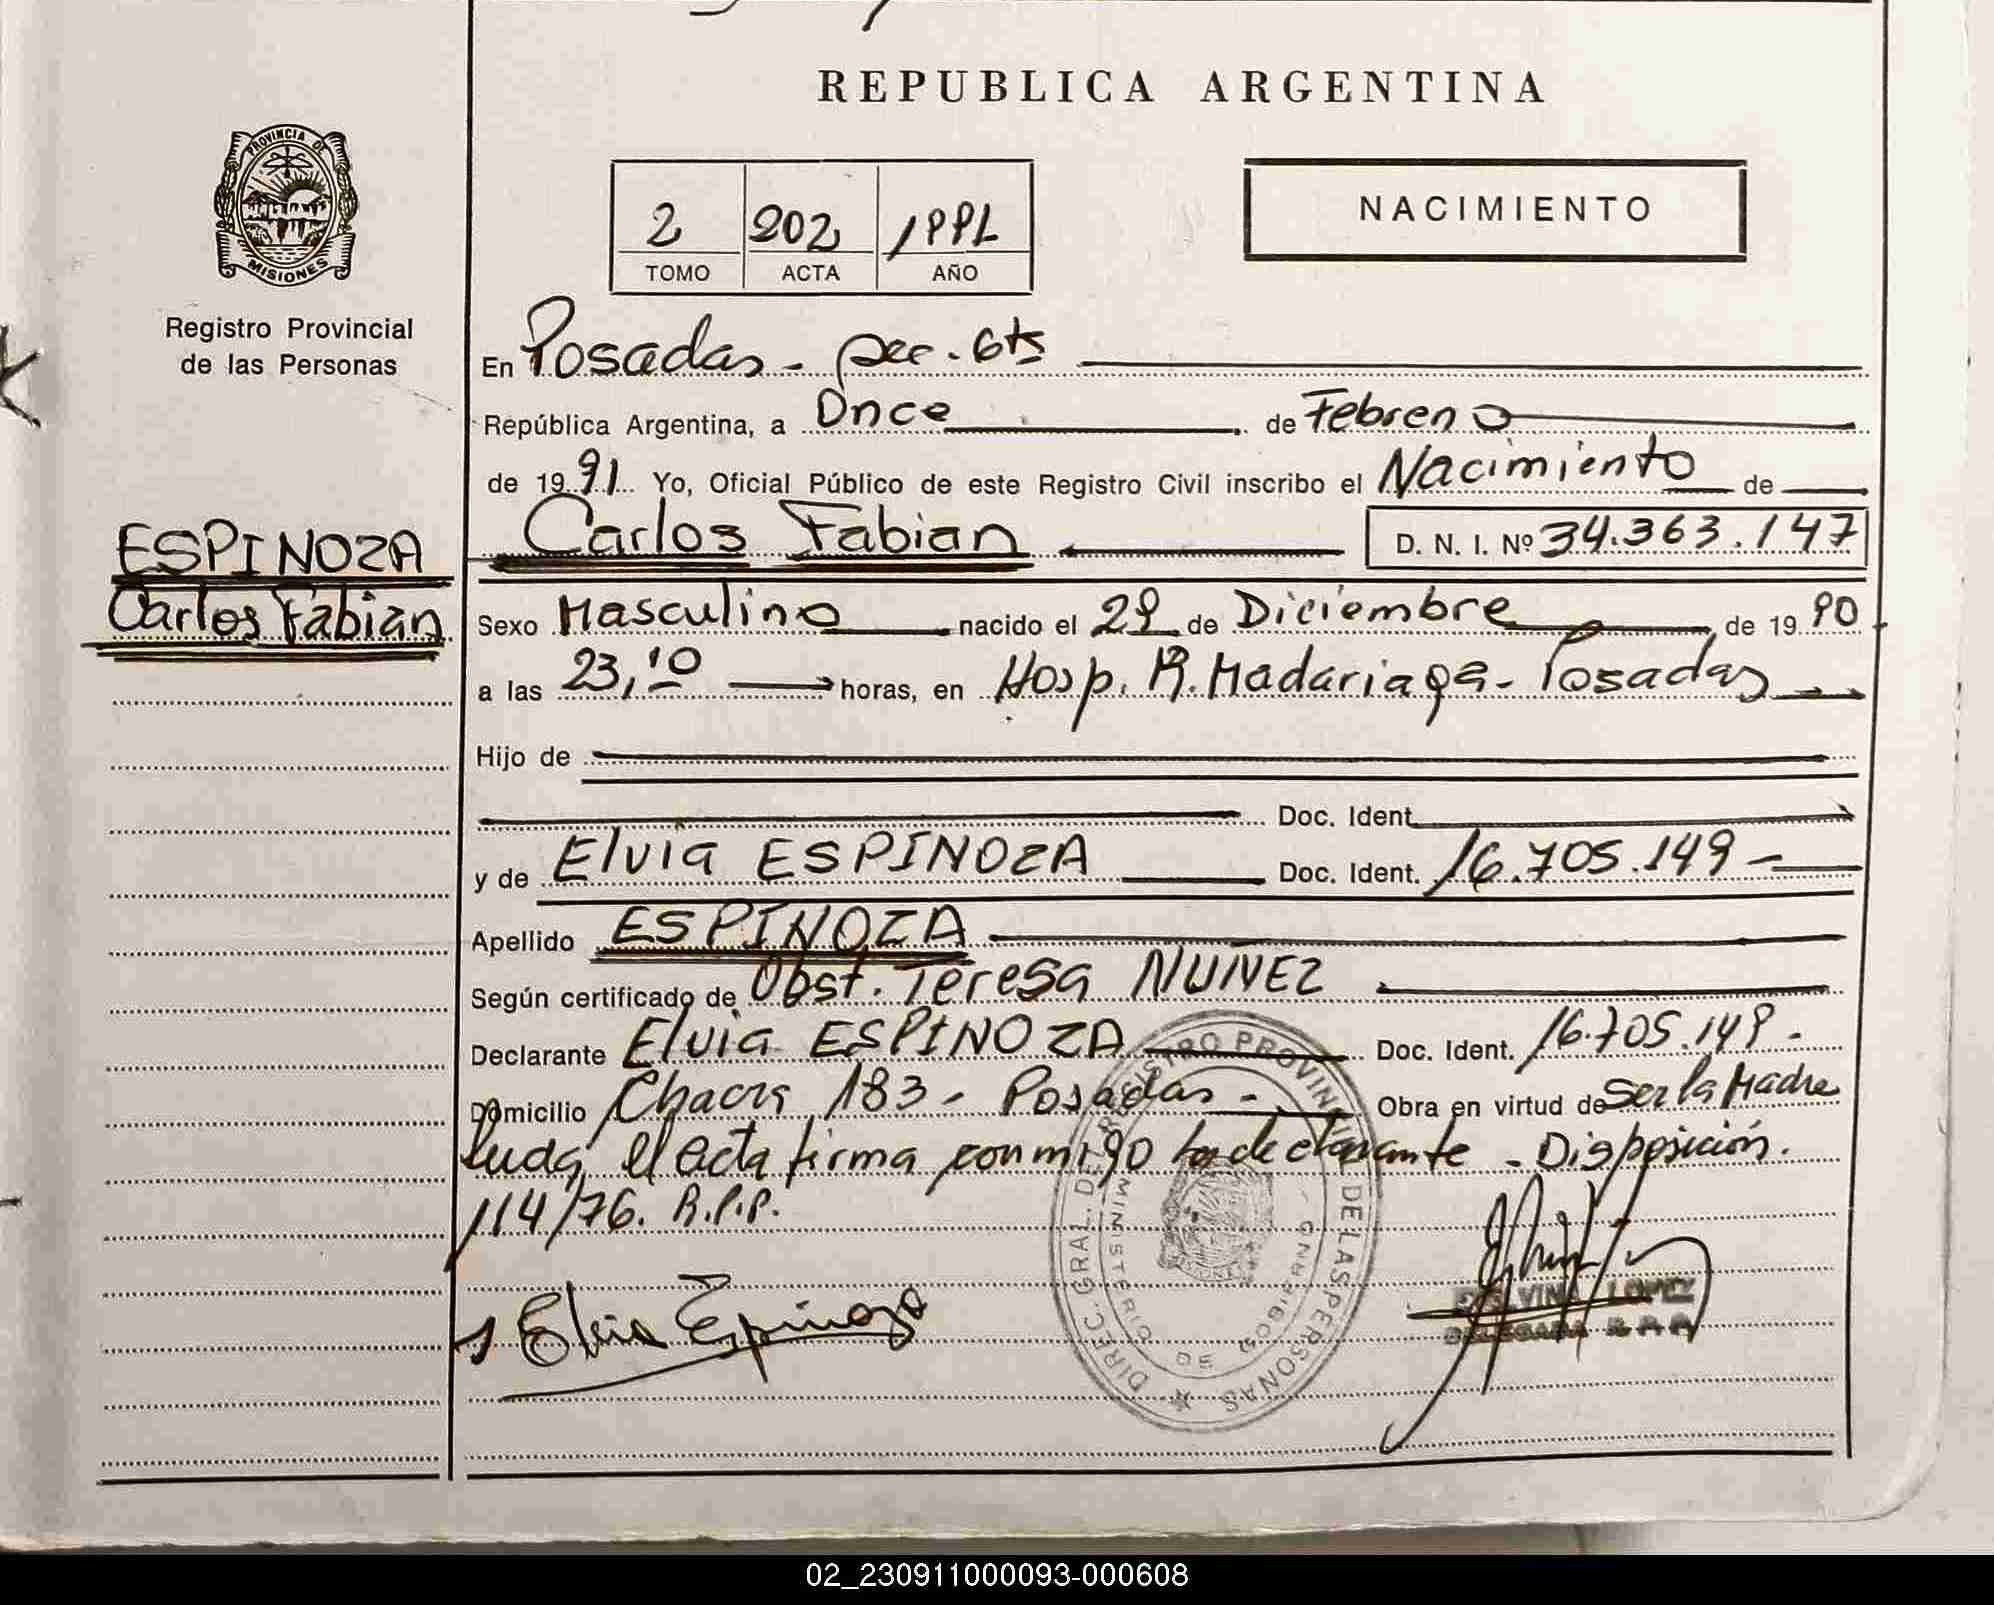 REPUBLICA ARGENTINA
PROVINCIA DE
MISIONES
Registro Provincial
de las Personas
2 202 1991
TOMO ACTA AÑO
NACIMIENTO
En Posadas - sec. 6ta
República Argentina, a Once de Febrero
de 1991 Yo, Oficial Público de este Registro Civil inscribo el Nacimiento de
Carlos Fabian D. N. I. Nº 34.363.147
ESPINOZA
Carlos Fabian
Sexo Masculino nacido el 29 de Diciembre de 1990
a las 23,10 horas, en Hosp. R. Madariaga - Posadas
Hijo de
Doc. Ident.
y de Elvia ESPINOZA Doc. Ident. 16.705.149 -
Apellido ESPINOZA
Según certificado de Obst. Teresa NUNEZ
Declarante Elvia ESPINOZA Doc. Ident. 16.705.149 -
Domicilio Chacra 183 - Posadas - Obra en virtud de Ser la Madre
el acta firma conmigo la declarante - Disposición.
114/76. R.P.P.
Elvia Espinoza
DIREC. GRAL. DEL REGISTRO PROVINCIAL DE LAS PERSONAS
MINISTERIO DE GOBIERNO
LOPEZ
DELEGADA R.P.P.
02_230911000093-000608